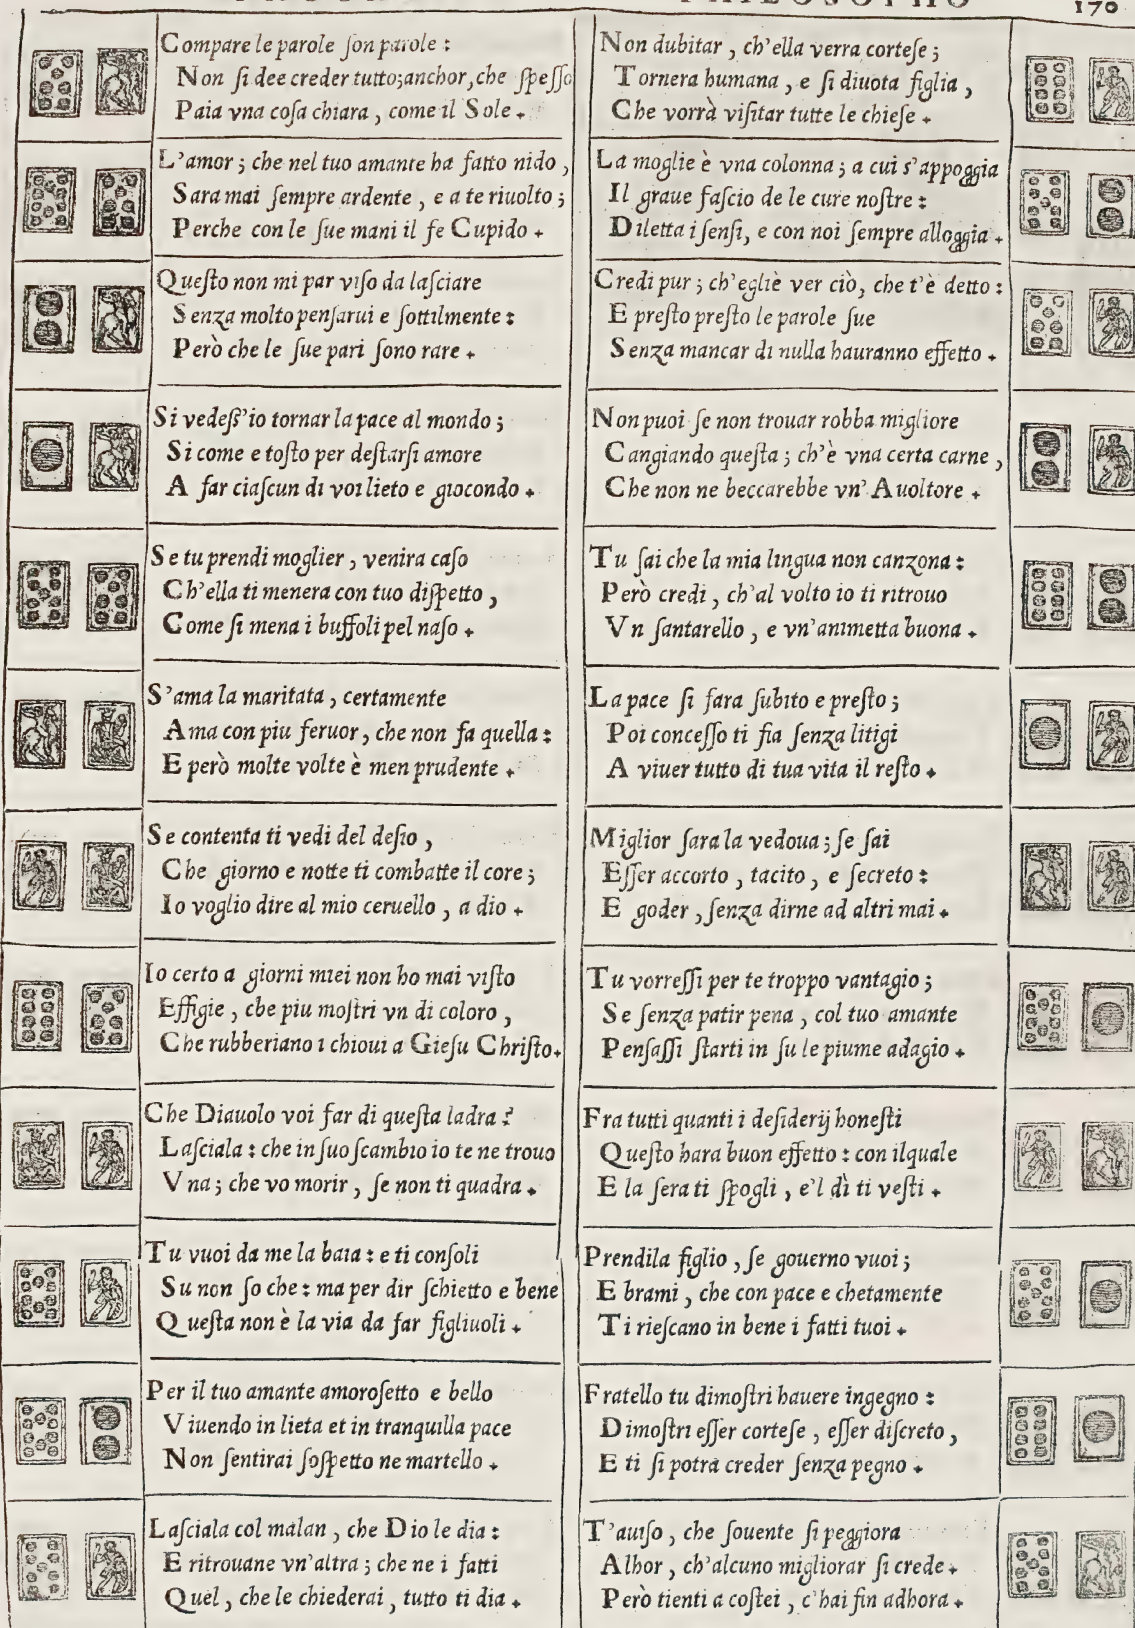 PHILOSOPHO
170
Compare le parole ſon parole :
Non ſi dee creder tutto;anchor,che ſpeſſo
Paia vna coſa chiara, come il Sole.
L'amor; che nel tuo amante ha fatto nido,
Sara mai ſempre ardente, e a te riuolto;
Perche con le ſue mani il fe Cupido.
Queſto non mi par viſo da laſciare
Senza molto penſarui e ſottilmente:
Però che le ſue pari ſono rare.
Si vedeſſ'io tornar la pace al mondo;
Si come e toſto per deſtarſi amore
A far ciaſcun di voi lieto e giocondo.
Se tu prendi moglier, venira caſo
Ch'ella ti menera con tuo diſpetto,
Come ſi mena i buffoli pel naſo.
S'ama la maritata, certamente
Ama con piu feruor, che non fa quella:
E però molte volte è men prudente.
Se contenta ti vedi del deſio,
Che giorno e notte ti combatte il core;
Io voglio dire al mio ceruello, a dio.
Io certo a giorni miei non ho mai viſto
Effigie, che piu moſtri vn di coloro,
Che rubberiano i chioui a Gieſu Chriſto.
Che Diauolo voi far di queſta ladra?
Laſciala: che in ſuo ſcambio io te ne trouo
Vna; che vo morir, ſe non ti quadra.
Tu vuoi da me la baia: e ti conſoli
Su non ſo che: ma per dir ſchietto e bene
Queſta non è la via da far figliuoli.
Per il tuo amante amoroſetto e bello
Viuendo in lieta et in tranquilla pace
Non ſentirai ſoſpetto ne martello.
Laſciala col malan, che Dio le dia:
E ritrouane vn'altra; che ne i fatti
Quel, che le chiederai, tutto ti dia.
Non dubitar, ch'ella verra corteſe;
Tornera humana, e ſi diuota figlia,
Che vorrà viſitar tutte le chieſe.
La moglie è vna colonna; a cui s'appoggia
Il graue faſcio de le cure noſtre:
Diletta i ſenſi, e con noi ſempre alloggia.
Credi pur; ch'egliè ver ciò, che t'è detto:
E preſto preſto le parole ſue
Senza mancar di nulla hauranno effetto.
Non puoi ſe non trouar robba migliore
Cangiando queſta; ch'è vna certa carne,
Che non ne beccarebbe vn' Auoltore.
Tu ſai che la mia lingua non canzona:
Però credi, ch'al volto io ti ritrouo
Vn ſantarello, e vn'animetta buona.
La pace ſi fara ſubito e preſto;
Poi conceſſo ti fia ſenza litigi
A viuer tutto di tua vita il reſto.
Miglior ſara la vedoua; ſe ſai
Eſſer accorto, tacito, e ſecreto:
E goder, ſenza dirne ad altri mai.
Tu vorreſſi per te troppo vantagio;
Se ſenza patir pena, col tuo amante
Penſaſſi ſtarti in ſu le piume adagio.
Fra tutti quanti i deſiderij honeſti
Queſto hara buon effetto: con ilquale
E la ſera ti ſpogli, e'l dì ti veſti.
Prendila figlio, ſe gouerno vuoi;
E brami, che con pace e chetamente
Ti rieſcano in bene i fatti tuoi.
Fratello tu dimoſtri hauere ingegno:
Dimoſtri eſſer corteſe, eſſer diſcreto,
E ti ſi potra creder ſenza pegno.
T'auiſo, che ſouente ſi peggiora
Alhor, ch'alcuno migliorar ſi crede.
Però tienti a coſtei, c'hai fin adhora.